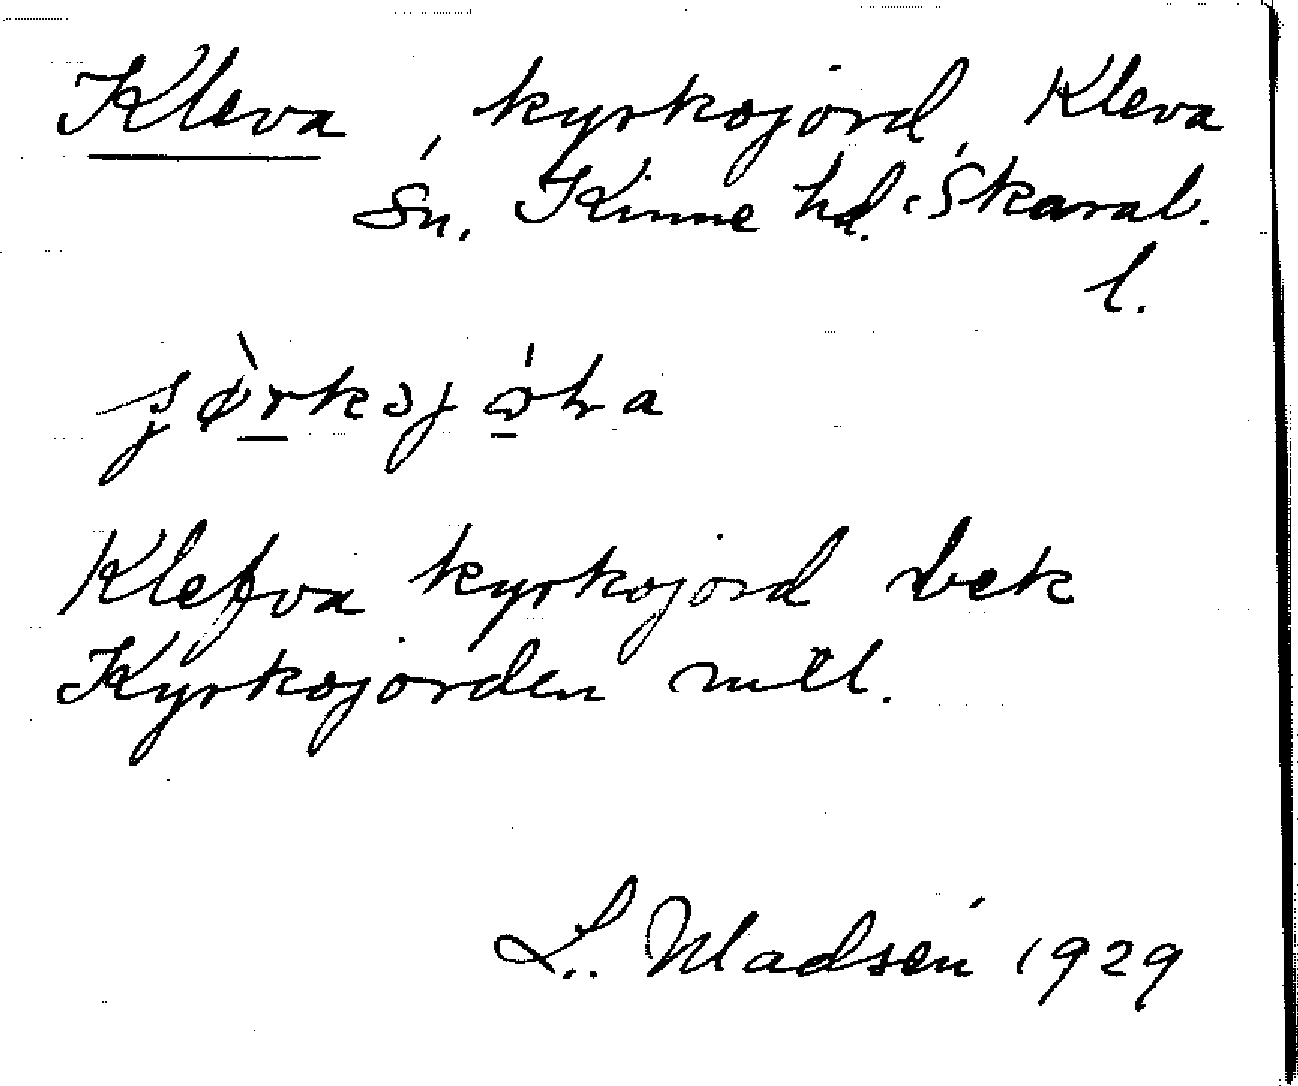 Kleva, kyrkojord, Kleva
sn, Kinne hd. Skarab.
l.
Klefva kyrkojord bek
Kyrkojorden mtl.
L. Madsén 1929